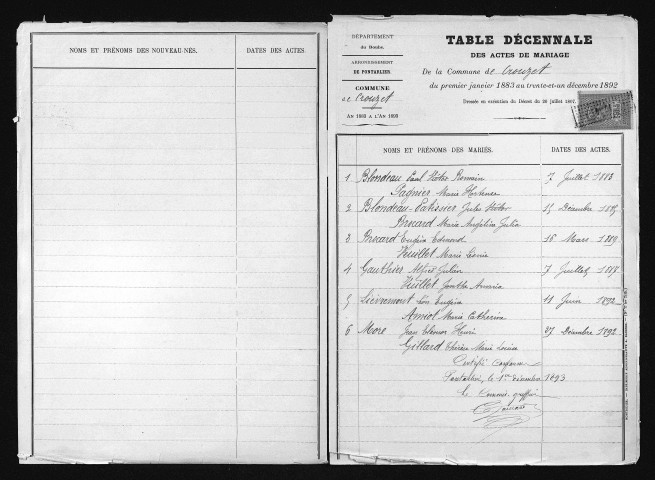 NOMS ET PRÉNOMS DES NOUVEAU-NÉS.
DATES DES ACTES.
DÉPARTEMENT
du Doubs.
ARRONDISSEMENT
DE PONTARLIER.
COMMUNE
de Crouzet
AN 1883 A L'AN 1893
TABLE DÉCENNALE
DES ACTES DE MARIAGE
De la Commune de Crouzet
du premier janvier 1883 au trente-et-un décembre 1892
Dressée en exécution du Décret du 20 juillet 1807.
NOMS ET PRÉNOMS DES MARIÉS.
DATES DES ACTES.
1 Blondeau Paul Victor Romain Juillet 1883
Pagnier Marie Hortense
2 Blondeau-Patissier Jules Victor 15 Décembre
Brocard Maria Angélia Julia
3 Brocard Eugène Edmond 16 Mars 1889
Vuillet Marie Léonie
4 Gauthier Alfred Julien 7 Juillet 1887
Vuillet
5 Lièvremont Léon Eugène 11 Juin 1892
Amiot Marie Catherine
6 More Jean Henri 27 Décembre 1892
Gillard Thérèse Marie Louise
Certifié conforme
Pontarlier, le 1er décembre 1893
Le Commis greffier